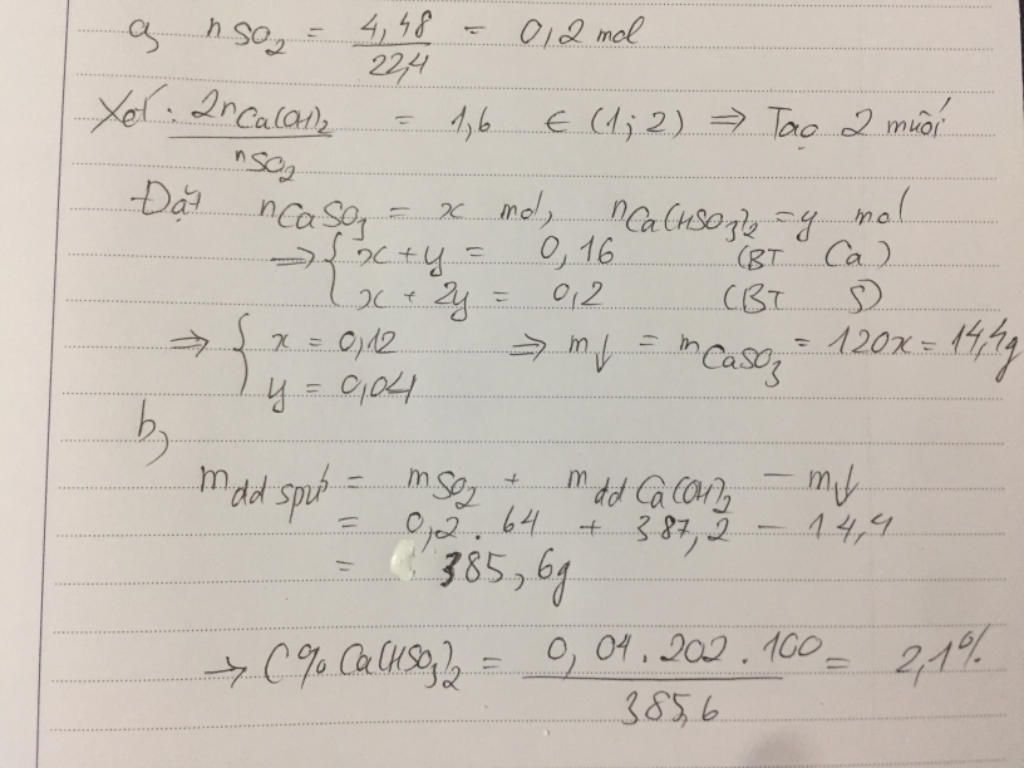 a, nSO₂ = 4,48 / 22,4 = 0,2 mol
Xét: 2nCa(OH)₂ / nSO₂ = 1,6 ∈ (1; 2) ⇒ Tạo 2 muối
Đặt nCaSO₃ = x mol, nCa(HSO₃)₂ = y mol
⇒ { x + y = 0,16 (BT Ca)
x + 2y = 0,2 (BT S)
⇒ { x = 0,12 ⇒ m↓ = mCaSO₃ = 120x = 14,4g
y = 0,04
b,
mdd spứ = mSO₂ + mdd Ca(OH)₂ - m↓
= 0,2 . 64 + 387,2 - 14,4
= 385,6g
→ C% Ca(HSO₃)₂ = 0,04 . 202 . 100 / 385,6 = 2,1%